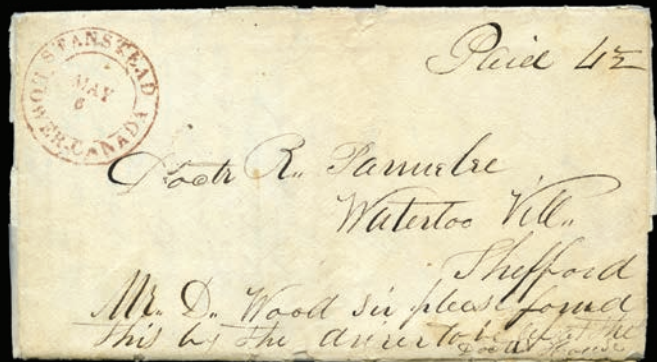 STANSTEAD
MAY
6
LOWER-CANADA
Paid 4½
Doctr R.. Parmelee
Waterloo Vill..
Shefford
Mr.. D.. Wood sir please forud
this by the driver to be left at the
Doctr House